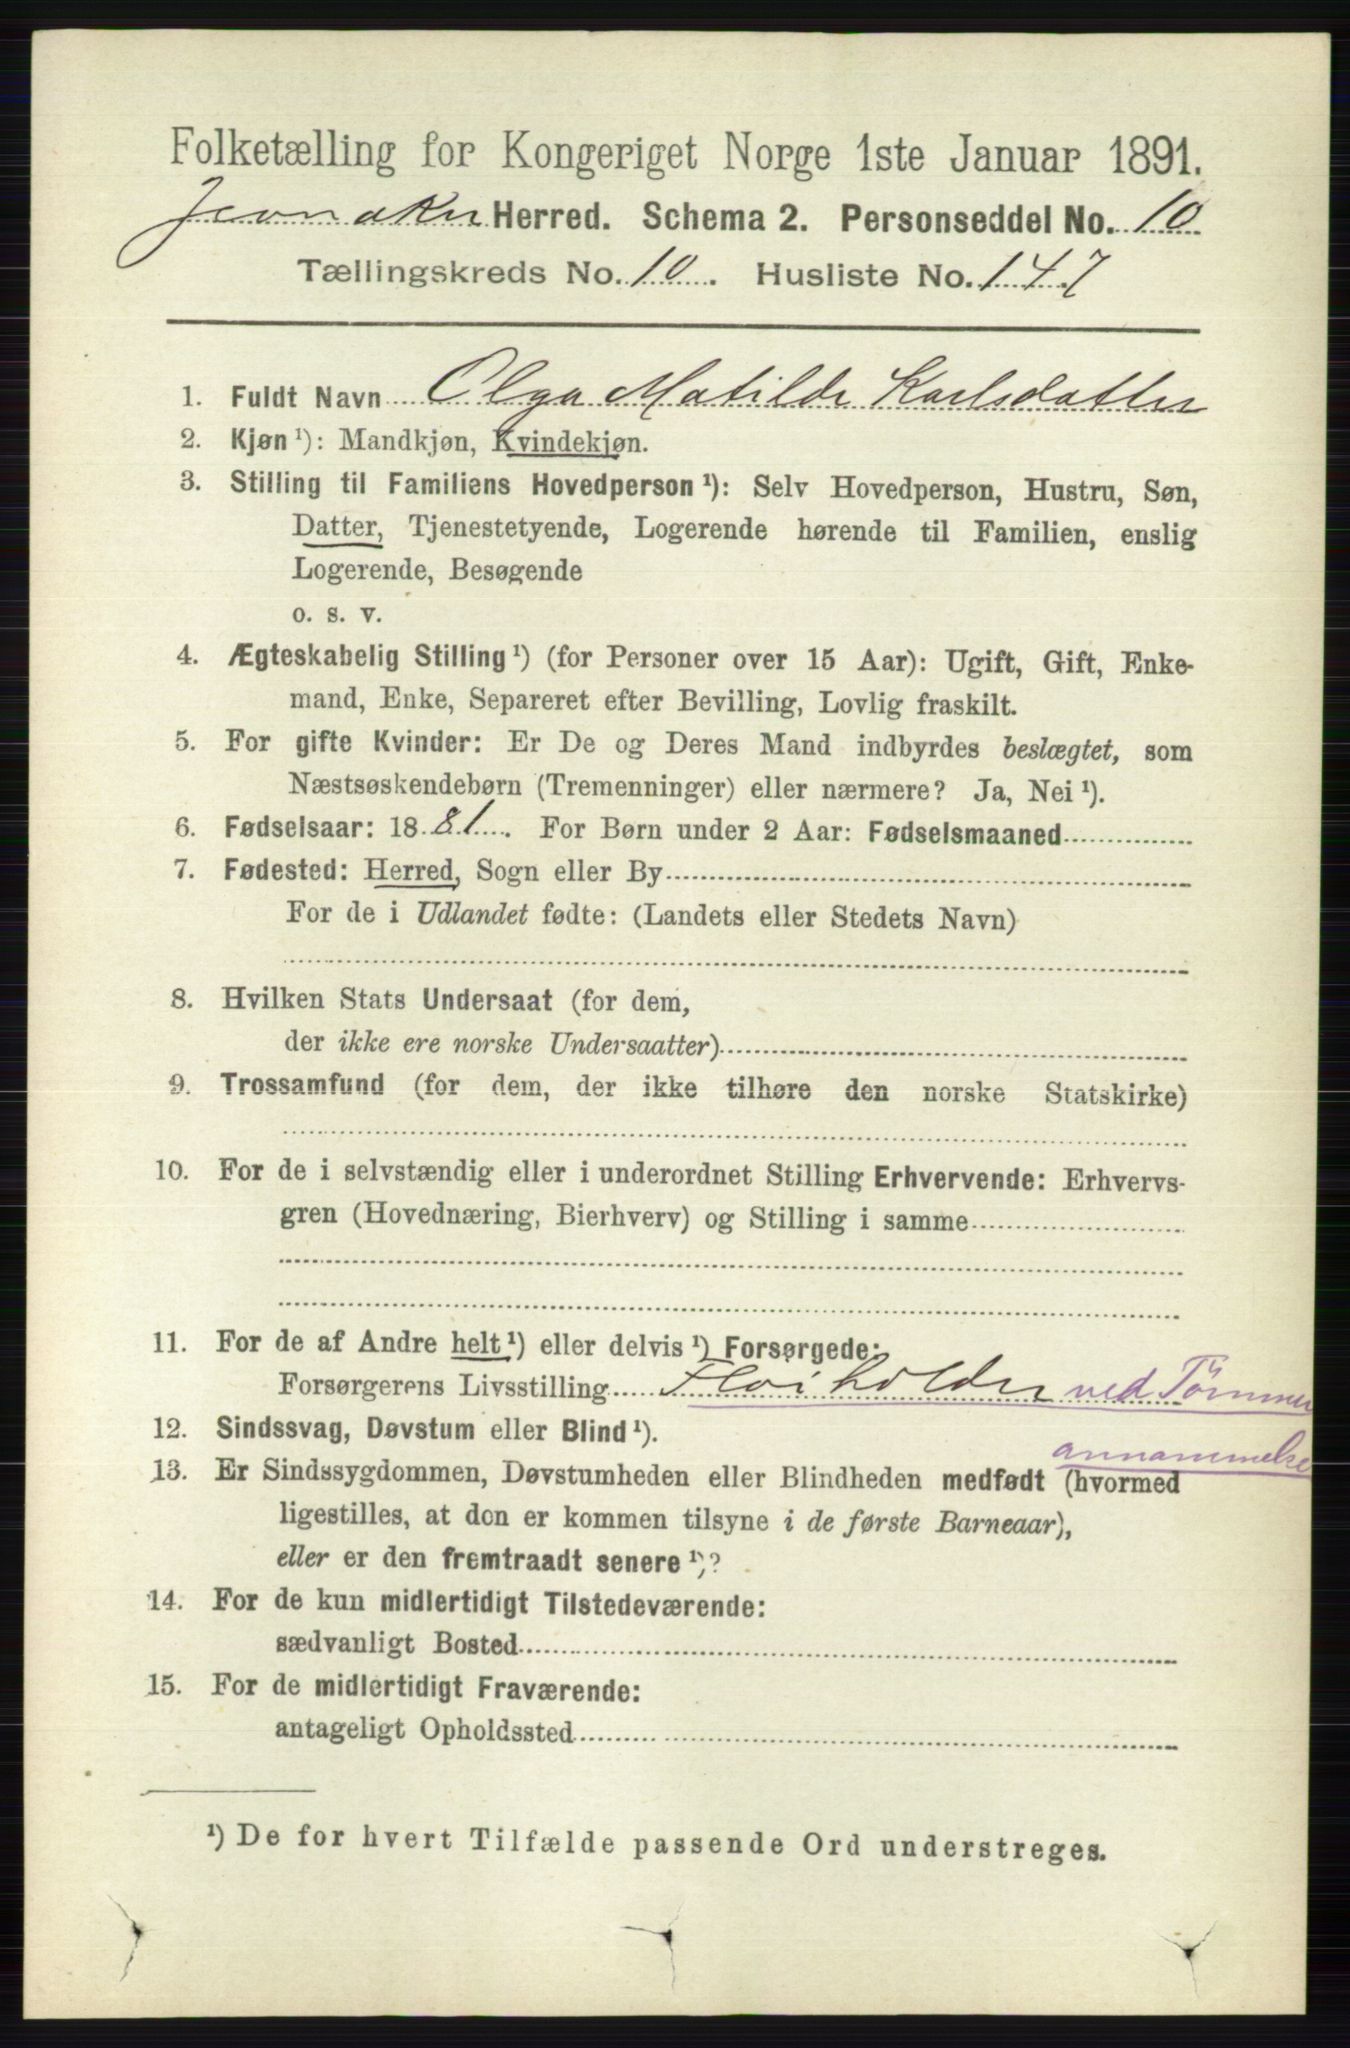 Folketælling for Kongeriget Norge 1ste Januar 1891.
Jevnaker Herred. Schema 2. Personseddel No. 10
Tællingskreds No. 10. Husliste No. 147
1. Fuldt Navn Olga Matilde Karlsdatter
2. Kjøn ¹): Mandkjøn, Kvindekjøn.
3. Stilling til Familiens Hovedperson ¹): Selv Hovedperson, Hustru, Søn,
Datter, Tjenestetyende, Logerende hørende til Familien, enslig
Logerende, Besøgende
o. s. v.
4. Ægteskabelig Stilling ¹) (for Personer over 15 Aar): Ugift, Gift, Enke-
mand, Enke, Separeret efter Bevilling, Lovlig fraskilt.
5. For gifte Kvinder: Er De og Deres Mand indbyrdes beslægtet, som
Næstsøskendebørn (Tremenninger) eller nærmere? Ja, Nei ¹).
6. Fødselsaar: 1881. For Børn under 2 Aar: Fødselsmaaned
7. Fødested: Herred, Sogn eller By
For de i Udlandet fødte: (Landets eller Stedets Navn)
8. Hvilken Stats Undersaat (for dem,
der ikke ere norske Undersaatter)
9. Trossamfund (for dem, der ikke tilhøre den norske Statskirke)
10. For de i selvstændig eller i underordnet Stilling Erhvervende: Erhvervs-
gren (Hovednæring, Bierhverv) og Stilling i samme
11. For de af Andre helt ¹) eller delvis ¹) Forsørgede:
Forsørgerens Livsstilling Floiholder ved Tömmer
annammelse
12. Sindssvag, Døvstum eller Blind ¹).
13. Er Sindssygdommen, Døvstumheden eller Blindheden medfødt (hvormed
ligestilles, at den er kommen tilsyne i de første Barneaar),
eller er den fremtraadt senere ¹)?
14. For de kun midlertidigt Tilstedeværende:
sædvanligt Bosted
15. For de midlertidigt Fraværende:
antageligt Opholdssted
¹) De for hvert Tilfælde passende Ord understreges.